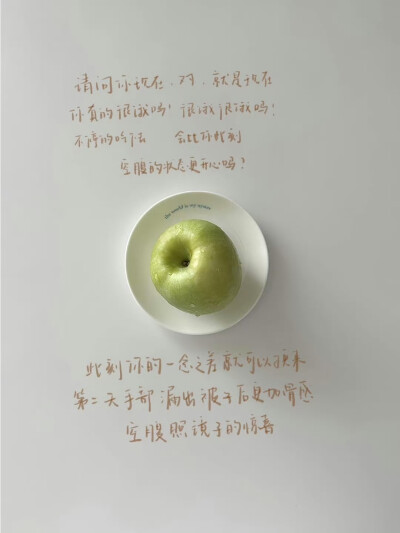 请问你现在，对，就是现在
你真的很饿吗！很饿很饿吗！
不停的吃 会比你此刻
空腹的状态更开心吗？
此刻你的一念之差就可以换来
第二天手部漏出被子后更加骨感
空腹照镜子的惊喜